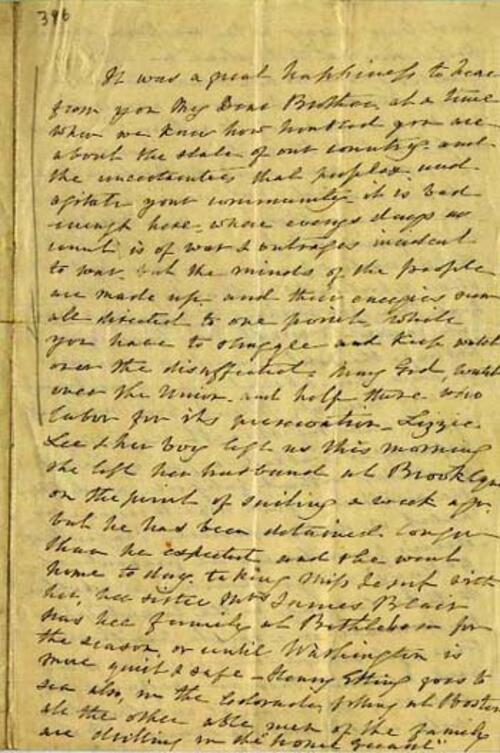 396
It was a great happiness to hear
from you My Dear Brother, at a time
when we know how troubled you are
about the state of our country and
the uncertainties that perplex and
agitate your community. it is bad
enough here where every days ac
count is of war & outrages incident
to war. but the minds of the people
are made up and their energies seem
all directed to one point while
you have to struggle and keep watch
over the disaffected. May God, watch
over the Union. and help those who
labor for its preservation. Lizzie
Lee & her boy left us this morning
she left her husband at Brooklyn
on the point of sailing a week ago.
but he has been detained longer
than he expected and she went
home to day. taking Miss with
her, her sister Mrs James Blair
has her family at Bethlehem for
the season, or until Washington is
more quiet & safe - Henry Etting goes to
sea also, in the Colorado, fitting at Boston
all the other able men of the family
are drilling in the "home guard"